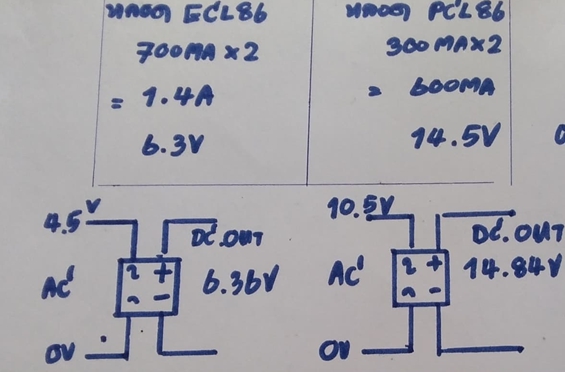 หลอด ECL86
700MA x 2
= 1.4A
6.3V
หลอด PCL86
300MA x 2
= 600MA
14.5V
4.5V
DC.OUT
AC
~ +
6.36V
~ -
0V
10.5V
DC.OUT
AC
~ +
14.84V
~ -
0V